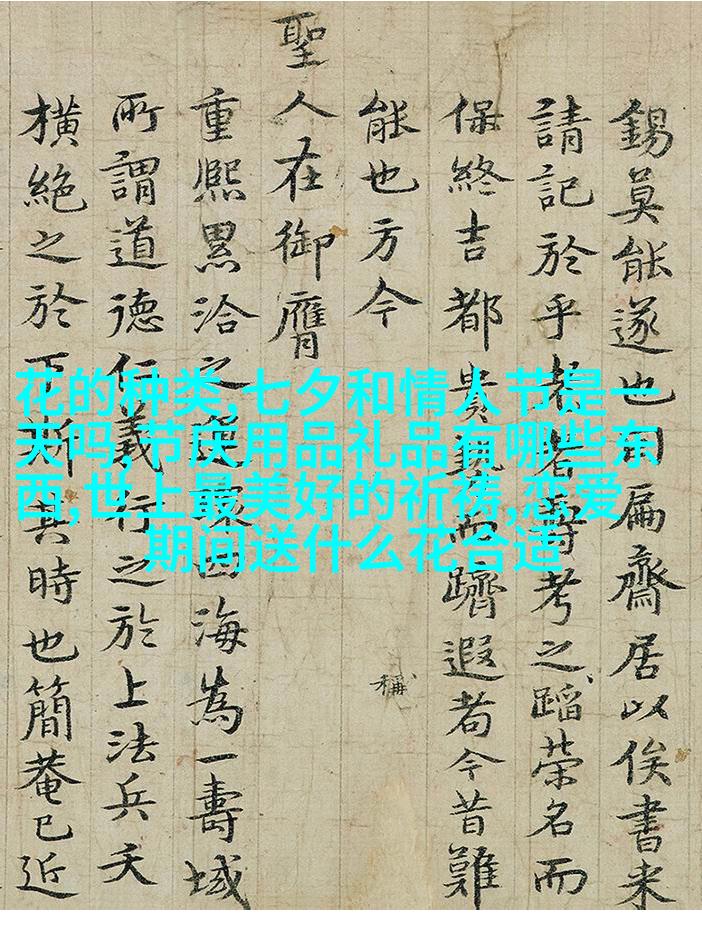 錫莫能遂也扁齋居以俟書来
請記於乎者壽考之蹈榮名而
保終吉都貴而躋遐耇今昔難
能也方今
稱
聖人在御膺
重熙累洽之海為一壽域
所謂道德仁義行之於上法兵夭
橫絶之於下斯其時也簡菴已近
花的种类,七夕和情人节是一
天吗,节庆用品礼品有哪些东
西,世上最美好的祈祷,恋爱
期间送什么花合适